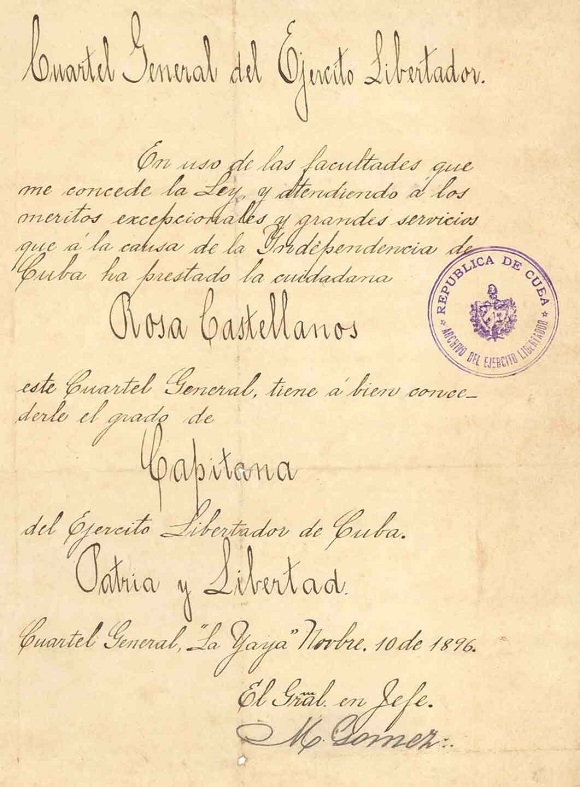 Cuartel General del Ejercito Libertador.
En uso de las facultades que
me concede la Ley, y atendiendo á los
meritos excepcionales y grandes servicios
que á la causa de la Yndependencia de
Cuba ha prestado la cuidadana
Rosa Castellanos
este Cuartel General, tiene á bien conce-
derle el grado de
Capitana
del Ejercito Libertador de Cuba.
Patria y Libertad.
Cuartel General, "La Yaya" Novbre. 10 de 1896.
El Gral. en Jefe.
M. Gomez
REPUBLICA DE CUBA
ARCHIVO DEL EJERCITO LIBERTADOR